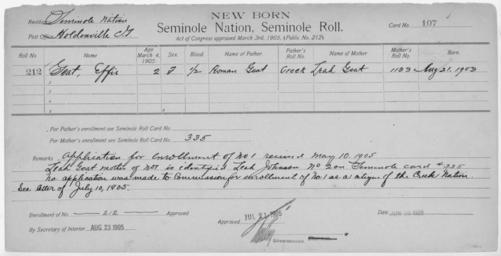 NEW BORN
Resid Seminole Nation
Seminole Nation, Seminole Roll.
Post O Holdenville I.T.
Card No. 107
Act of Congress approved March 3rd, 1905, (Public No. 212).
Roll No. Name Age March 4, 1905 Sex. Blood Name of Father. Father's Roll No. Name of Mother Mother's Roll No. Born.
212 Goat, Effie 2 F 1/2 Roman Goat Creek Leah Goat 1133 Aug 21, 1903
For Father's enrollment see Seminole Roll Card No.
For Mother's enrollment use Seminole Roll Card No. 335
Remarks Application for enrollment of No 1 received May 10, 1905
Leah Goat mother of No 1 is identified Leah Johnson No 2 on Seminole card #335
No application was made to Commission for enrollment of No. 1 as a citizen of the Creek Nation.
See letter of July 10, 1905.
Enrollment of No. 212 Approved
Approved JUL 21 1905
Date
By Secretary of Interior AUG 23 1905
Commissioner